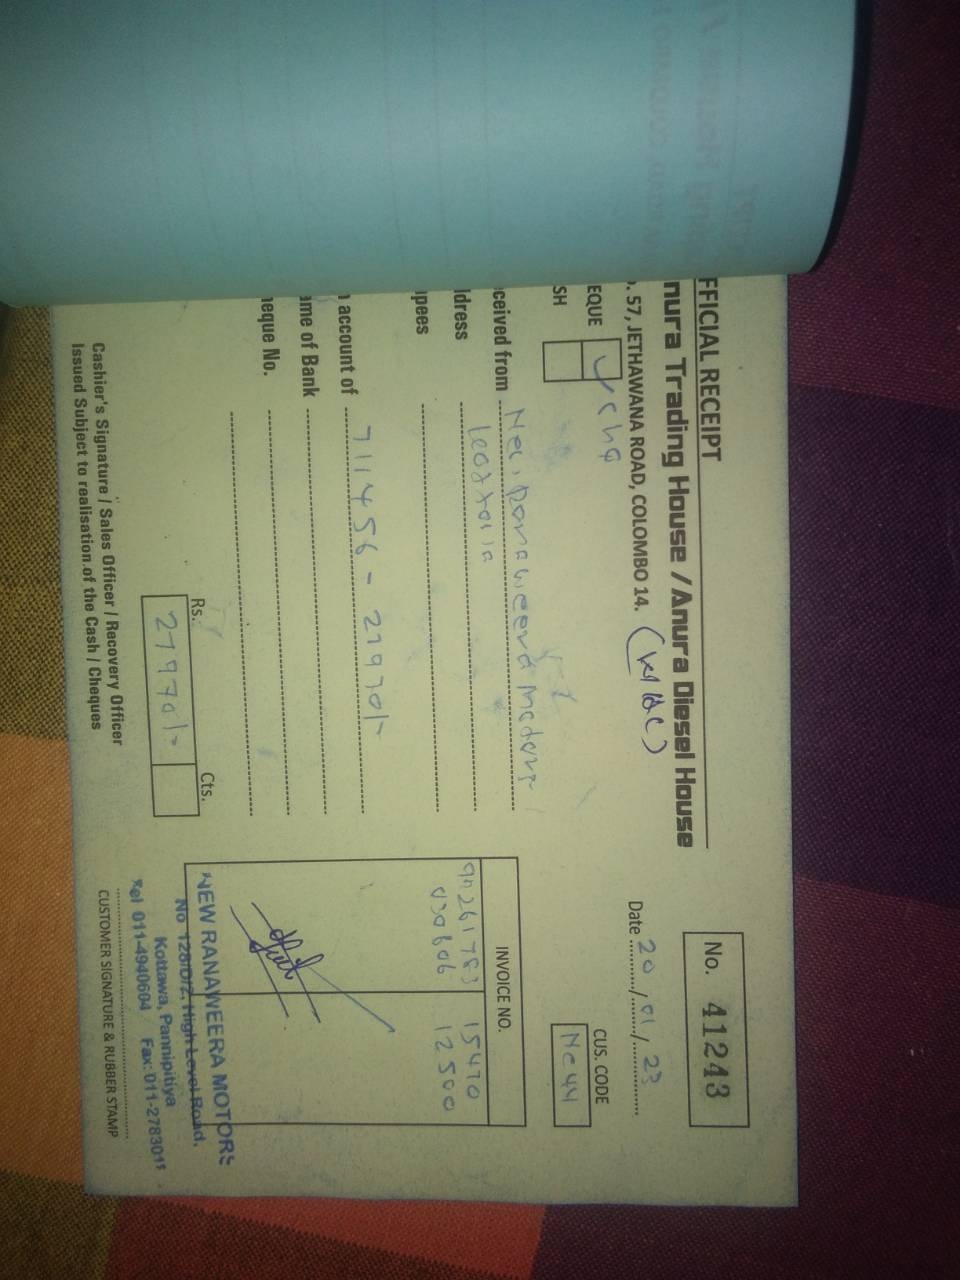 FFICIAL RECEIPT
No. 41243
nura Trading House / Anura Diesel House
. 57, JETHAWANA ROAD, COLOMBO 14.
Date 20/01/23
EQUE
SH
CUS. CODE
ceived from Ranaweera
dress
upees
n account of 711456 - 27970/-
ame of Bank
heque No.
INVOICE NO.
15470
030606 12500
Rs. Cts.
27970/-
NEW RANAWEERA MOTORS
No 128/D/2, High Level Road,
Kottawa, Pannipitiya
Tel 011-4940604 Fax: 011-278301
Cashier's Signature / Sales Officer / Recovery Officer
Issued Subject to realisation of the Cash / Cheques
CUSTOMER SIGNATURE & RUBBER STAMP